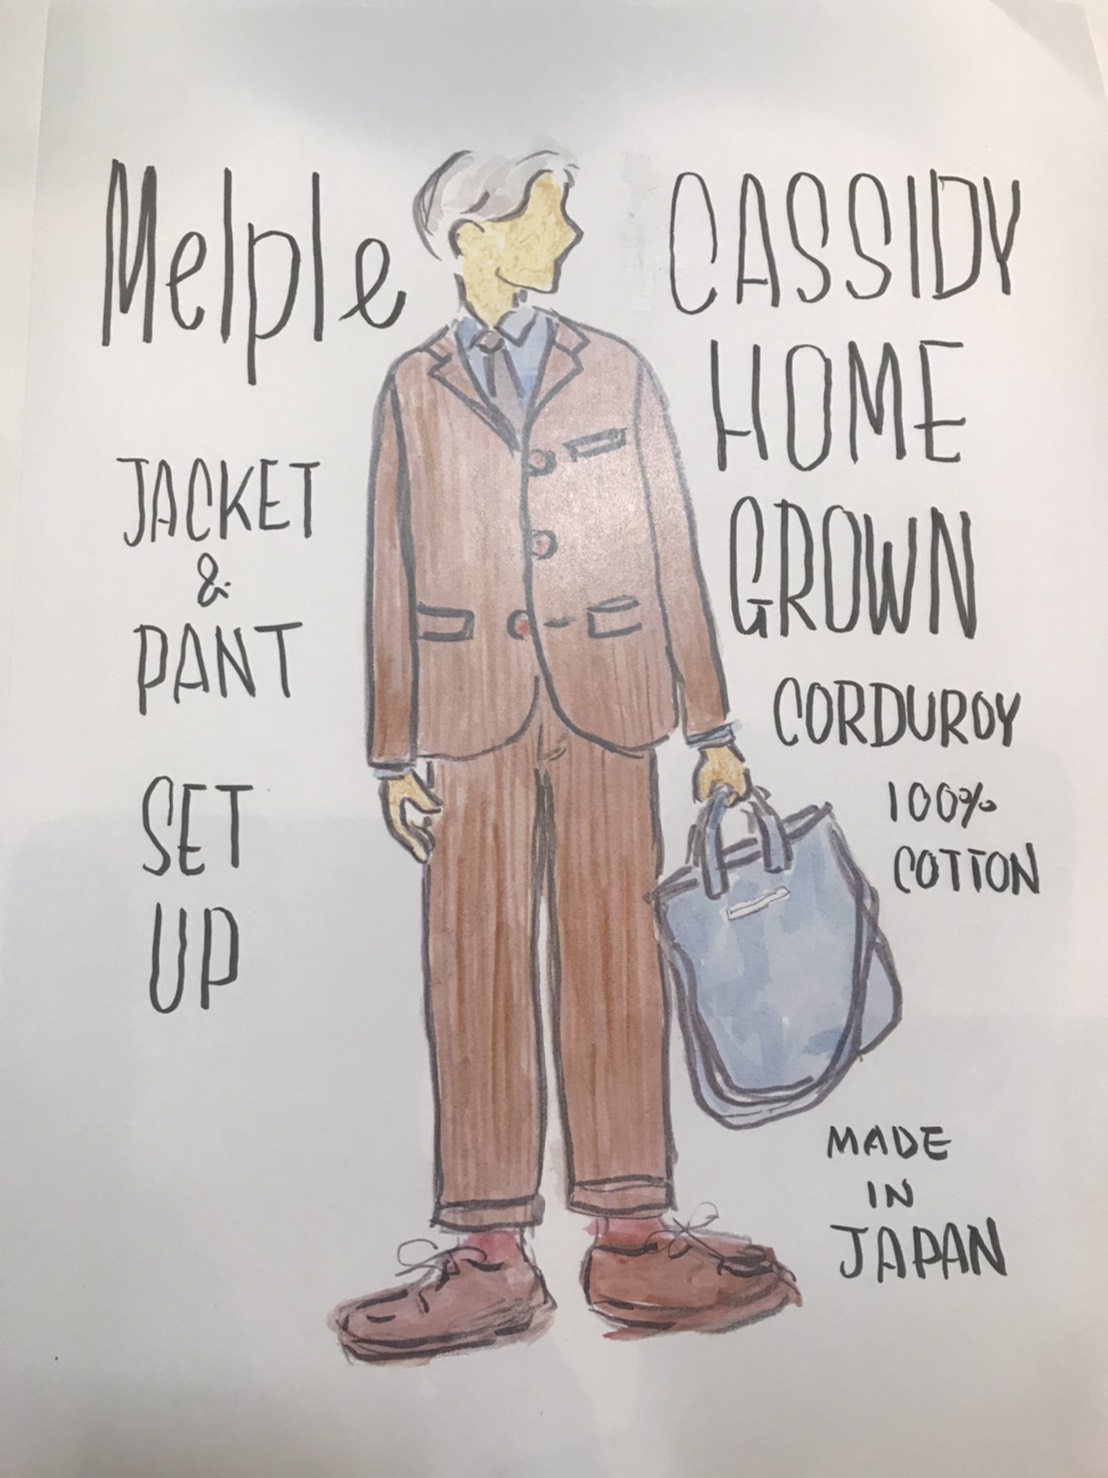 Melple
JACKET
&
PANT
SET
UP
CASSIDY
HOME
GROWN
CORDUROY
100%
COTTON
MADE
IN
JAPAN